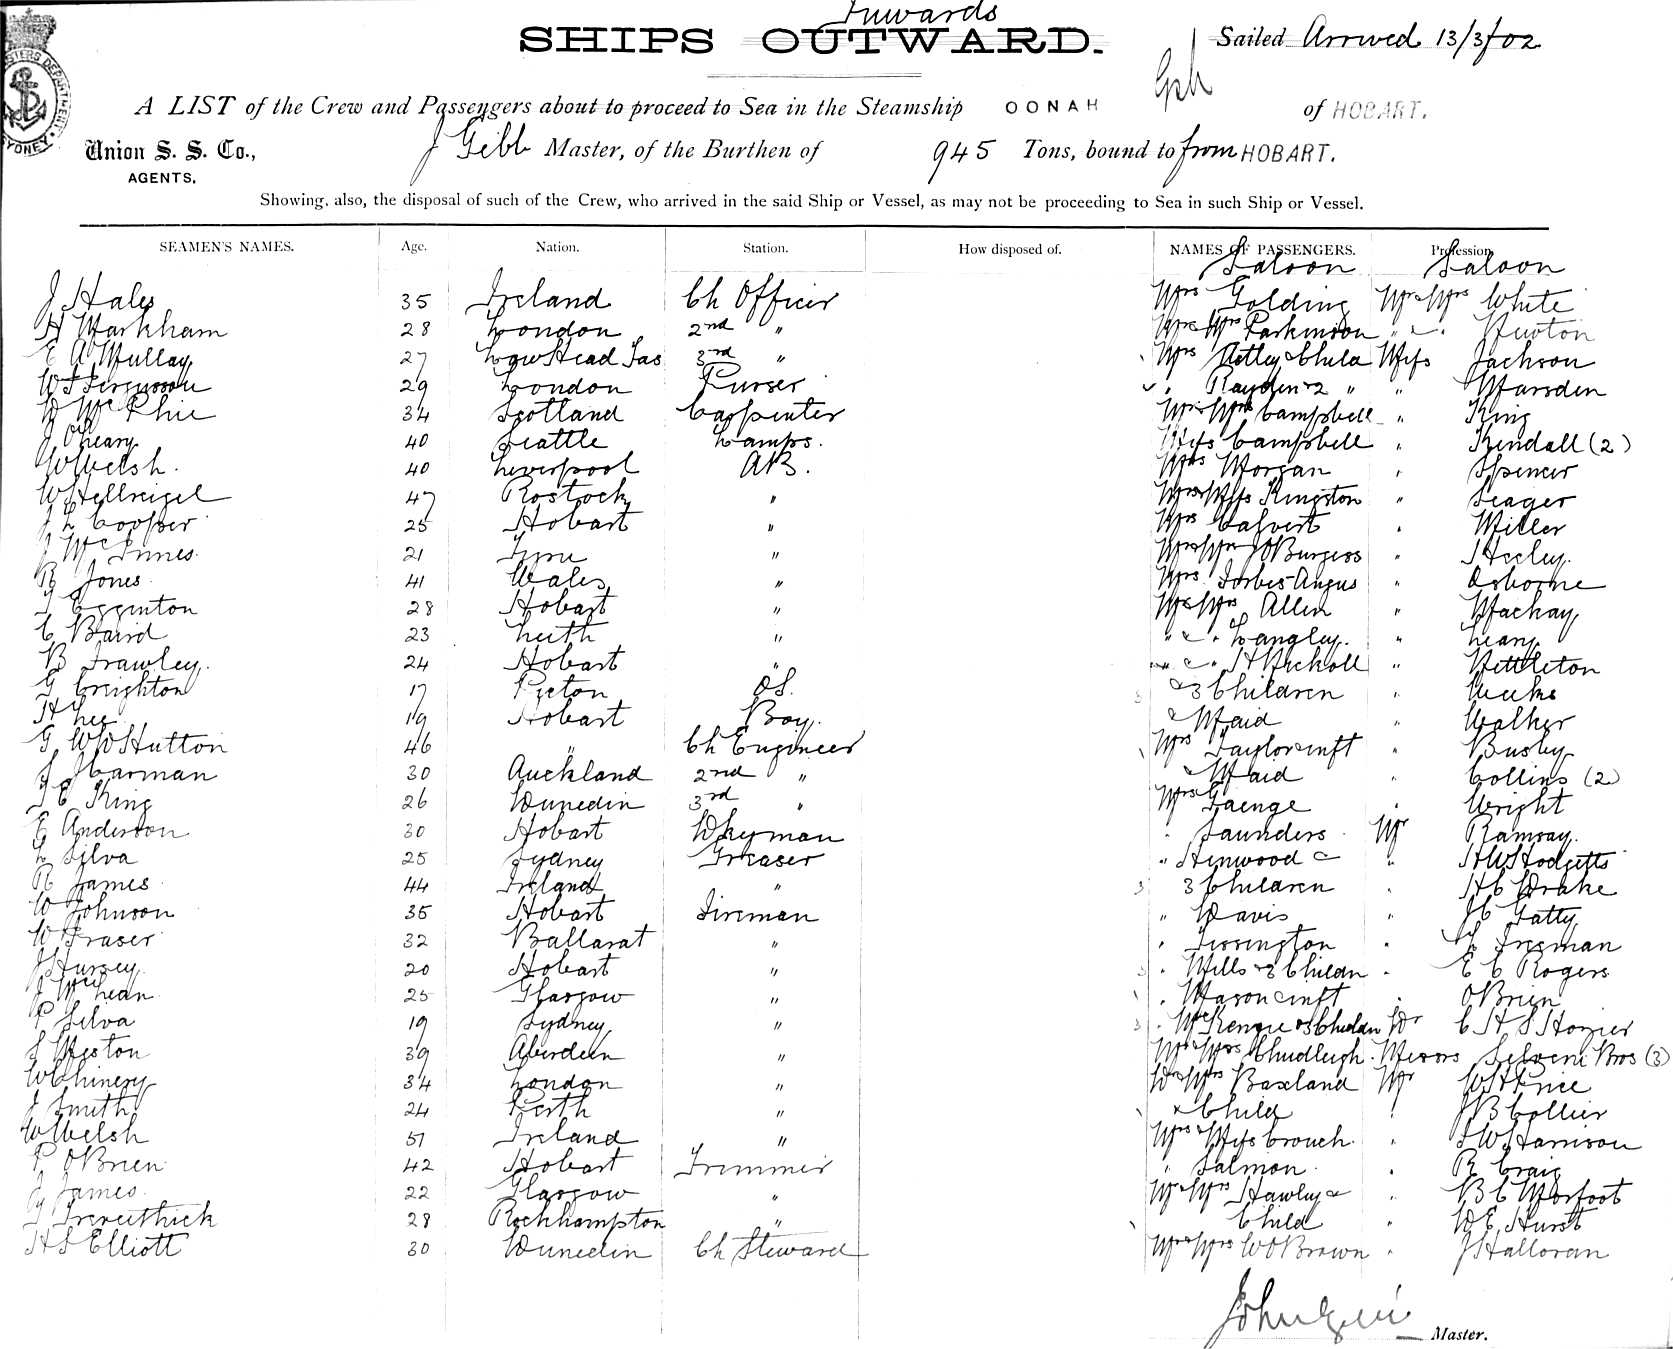 Inwards
SHIPS OUTWARD.
Sailed Arrived 13/3/02
A LIST of the Crew and Passengers about to proceed to Sea in the Steamship OONAH of HOBART.
Union S. S. Co.,
AGENTS.
J Gibb Master, of the Burthen of 945 Tons, bound to from HOBART.
Showing, also, the disposal of such of the Crew, who arrived in the said Ship or Vessel, as may not be proceeding to Sea in such Ship or Vessel.
SEAMEN'S NAMES. Age. Nation. Station. How disposed of. NAMES OF PASSENGERS. Profession.
Saloon Saloon
J Hales 35 Ireland Ch Officer Mrs Golding Mr & Mrs White
H Markham 28 London 2nd " Mr & Mrs Parkinson " & " Newton
E A Mullay 27 Low Head Tas 3rd " Mrs & Child Miss Jackson
W J Fergusson 29 London Purser " & 2 " " Marsden
D McPhie 34 Scotland Carpenter Mr & Mrs Campbell " King
J OLeary 40 Seattle Lamps. Miss Campbell " Kendall (2)
W Welsh. 40 Liverpool AB. Mrs Morgan " Spencer
W Hellreigel 47 Rostock " Mrs & Miss Kingston " Seager
J L Cooper 25 Hobart " Mrs Calvert " Miller
J McInnes 21 Tyne " Mr & Mrs Burgess " Heeley.
R Jones 41 Wales " Mrs Forbes Angus " Osborne
T Egginton 28 Hobart " Mr & Mrs Allen " Mackay
C Baird 23 Leith " " & " Langley. " Leary
B Frawley. 24 Hobart " " & " H Nicholl " Nettleton
G Creighton 17 Picton OS. & 3 Children " Weeks
H Lee 19 Hobart Boy. & Maid " Walker
G W W Hutton 46 " Ch Engineer Mrs Taylor & inft " Busby
J Harman 30 Auckland 2nd " & Maid " Collins (2)
T E King 26 Dunedin 3rd " Mrs Gaenge " Wright
E Anderson 30 Hobart Dkeyman " Saunders Mr Ramsay.
L Silva 25 Sydney Greaser " Henwood & " H W Hodgetts
R James 44 Ireland " 3 Children " H C Drake
W Johnson 35 Hobart Fireman " Davis " J C Tatty
W Fraser 32 Ballarat " " Terrington " Freeman
J Hursey 20 Hobart " " Mills & 3 Childn " E C Rogers
J McLean 25 Glasgow " " Mason & inft " OBrien
P Silva 19 Sydney " " McKenzie & 3 Children Dr C H S Hozier
S Weston 39 Aberdeen " Mr & Mrs Chudleigh. Messrs Bros (3)
W Chinery 34 London " Dr & Mrs Mr W H Price
J Smith 24 Perth " & Child " J B Collier
W Welsh 51 Ireland " Mrs & Miss Crouch. " J W Harrison
P OBrien 42 Hobart Trimmer " Salmon. " R Craig
J James. 22 Glasgow " Mr & Mrs Hawley & " B C Morfoot
J Trevethick 28 Rockhampton " Child " W E Hurst
H S Elliott 30 Dunedin Ch Steward Mr & Mrs W O Brown " J Halloran
John Gibb Master.